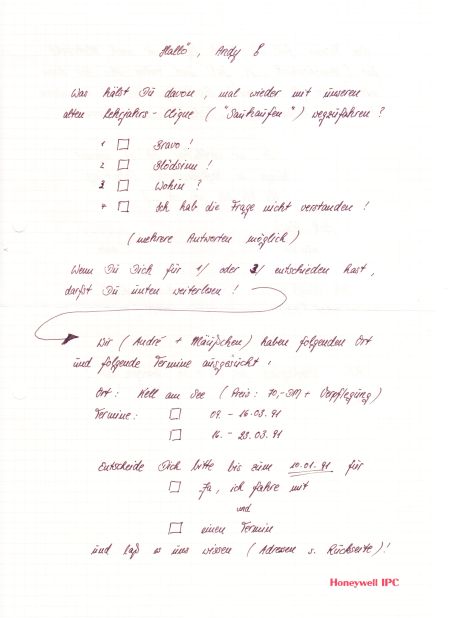 Hallo, Andy B
Was hälst Du davon, mal wieder mit unseren
alten Lehrjahrs-Clique ("Sauhaufen") wegzufahren?
1 ☐ Bravo!
2 ☐ Blödsinn!
3 ☐ Wohin?
4 ☐ Ich hab die Frage nicht verstanden!
(mehrere Antworten möglich)
Wenn Du Dich für 1/ oder 3/ entschieden hast,
darfst Du unten weiterlesen!
Wir (André + Mäuschen) haben folgenden Ort
und folgende Termine ausgesucht:
Ort: Kell am See (Preis: 70,-DM + Verpflegung)
Termine: ☐ 09. - 16.03.91
☐ 16. - 23.03.91
Entscheide Dich bitte bis zum 10.01.91 für
☐ Ja, ich fahre mit
und
☐ einen Termin
und laß es uns wissen (Adressen s. Rückseite)!
Honeywell IPC